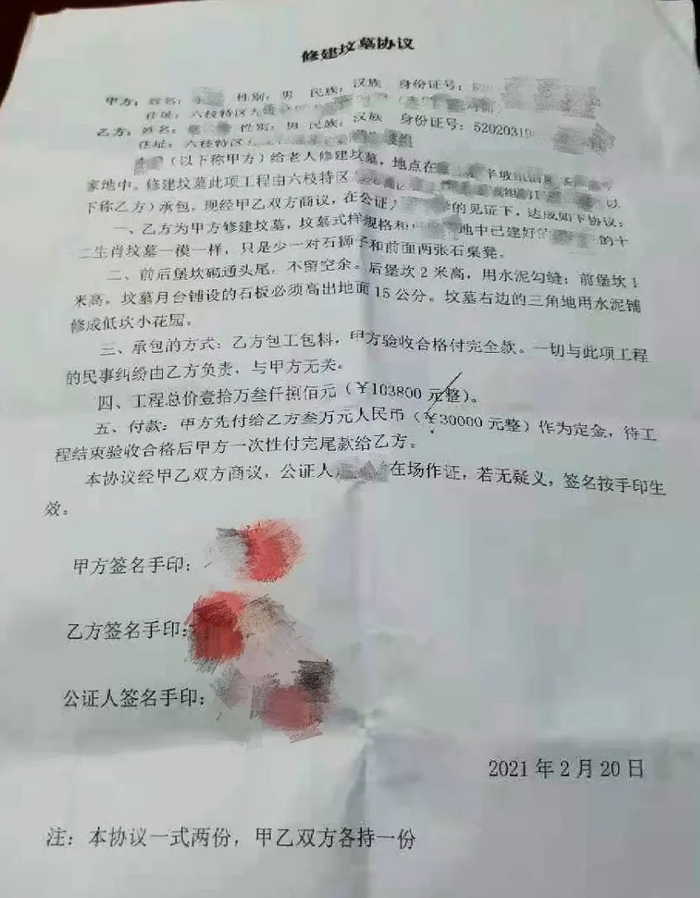 修建坟墓协议
甲方：姓名： 性别：男 民族：汉族 身份证号：520
住址：六枝特区大
乙方：姓名： 性别：男 民族：汉族 身份证号：52020319
住址：六枝特区 组
（以下称甲方）给老人修建坟墓，地点在 半坡组
家地中。修建坟墓此项工程由六枝特区 以
下称乙方）承包，现经甲乙双方商议，在公证人 的见证下，达成如下协议：
一、乙方为甲方修建坟墓，坟墓式样规格和 地中已建好的 的十
二生肖坟墓一模一样，只是少一对石狮子和前面两张石桌凳。
二、前后堡坎砌通头尾，不留空余。后堡坎2米高，用水泥勾缝；前堡坎1
米高。坟墓月台铺设的石板必须高出地面15公分。坟墓右边的三角地用水泥铺
修成低坎小花园。
三、承包的方式：乙方包工包料，甲方验收合格付完全款。一切与此项工程
的民事纠纷由乙方负责，与甲方无关。
四、工程总价壹拾万叁仟捌佰元（￥103800元整）。
五、付款：甲方先付给乙方叁万元人民币（￥30000元整）作为定金，待工
程结束验收合格后甲方一次性付完尾款给乙方。
本协议经甲乙双方商议，公证人 在场作证，若无疑义，签名按手印生
效。
甲方签名手印：
乙方签名手印：
公证人签名手印：
2021年2月20日
注：本协议一式两份，甲乙双方各持一份